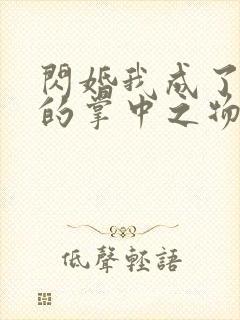 閃婚我成了
的掌中之物
低聲輕語